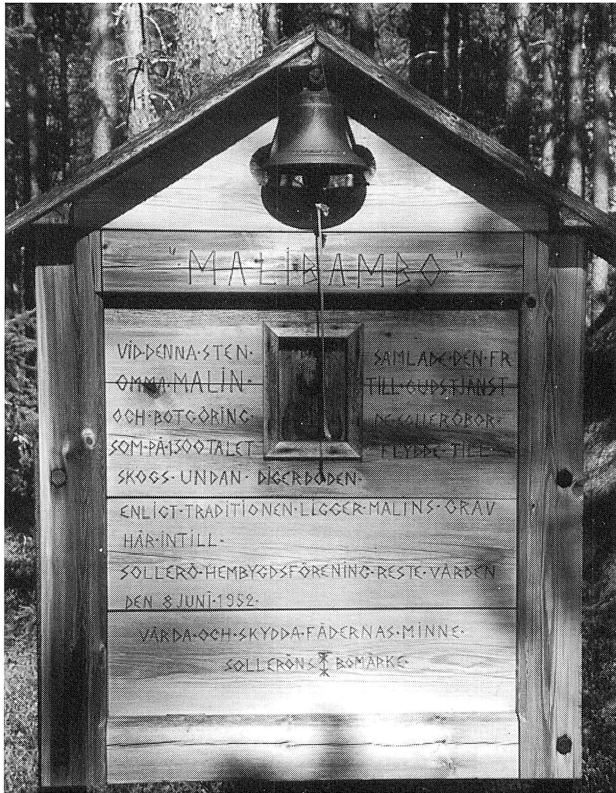 "MALIBAMBO"
VID·DENNA·STEN· SAMLADE·DEN·FR
OMMA·MALIN· TILL·GUDSTJÄNST
OCH·BOTGÖRING· DE·SOLLERÖBOR·
SOM·PÅ·1500TALET FLYDDE·TILL·
SKOGS·UNDAN·DIGERDÖDEN·
ENLIGT·TRADITIONEN·LIGGER·MALINS·GRAV
HÄR·INTILL·
SOLLERÖ·HEMBYGDSFÖRENING·RESTE·VÅRDEN
DEN 8 JUNI·1952·
VÅRDA·OCH·SKYDDA·FÄDERNAS·MINNE·
SOLLERÖNS BOMÄRKE·